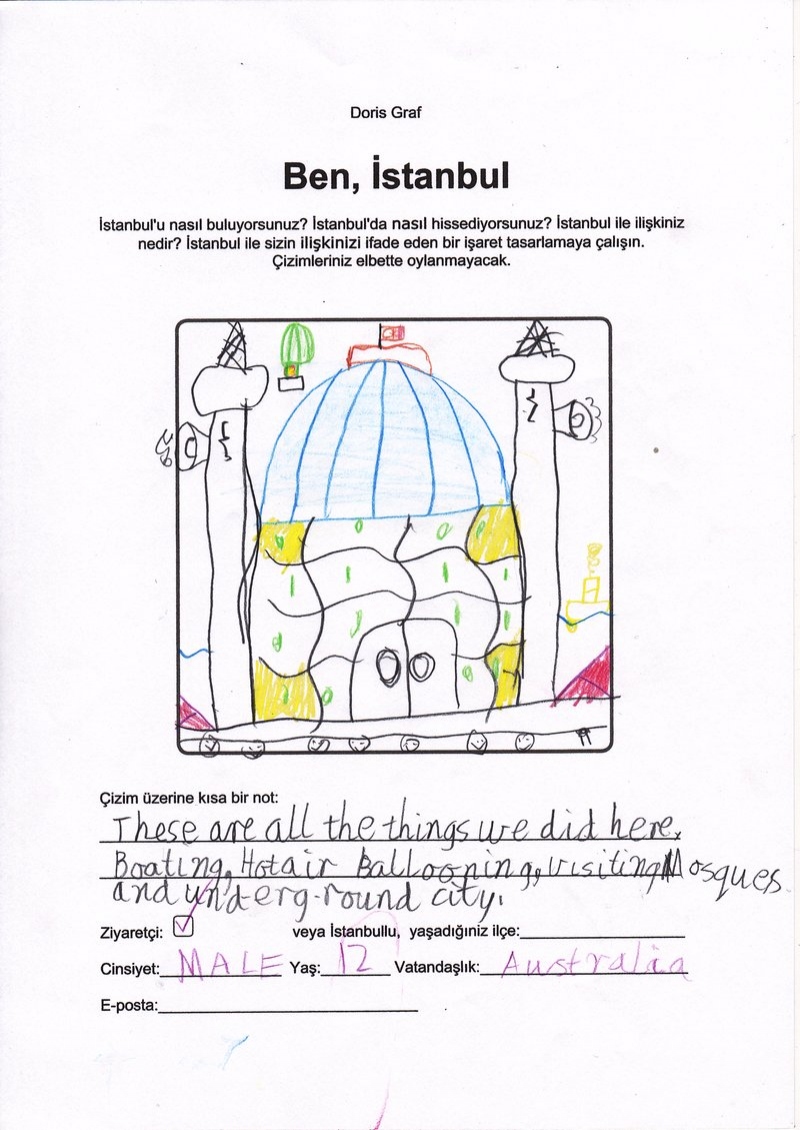 Doris Graf
Ben, İstanbul
İstanbul'u nasıl buluyorsunuz? İstanbul'da nasıl hissediyorsunuz? İstanbul ile ilişkiniz
nedir? İstanbul ile sizin ilişkinizi ifade eden bir işaret tasarlamaya çalışın.
Çizimleriniz elbette oylanmayacak.
Çizim üzerine kısa bir not:
These are all the things we did here.
Boating, Hot air Ballooning, visiting Mosques
and underground city.
Ziyaretçi: veya İstanbullu, yaşadığınız ilçe:
Cinsiyet: MALE Yaş: 12 Vatandaşlık: Australia
E-posta: